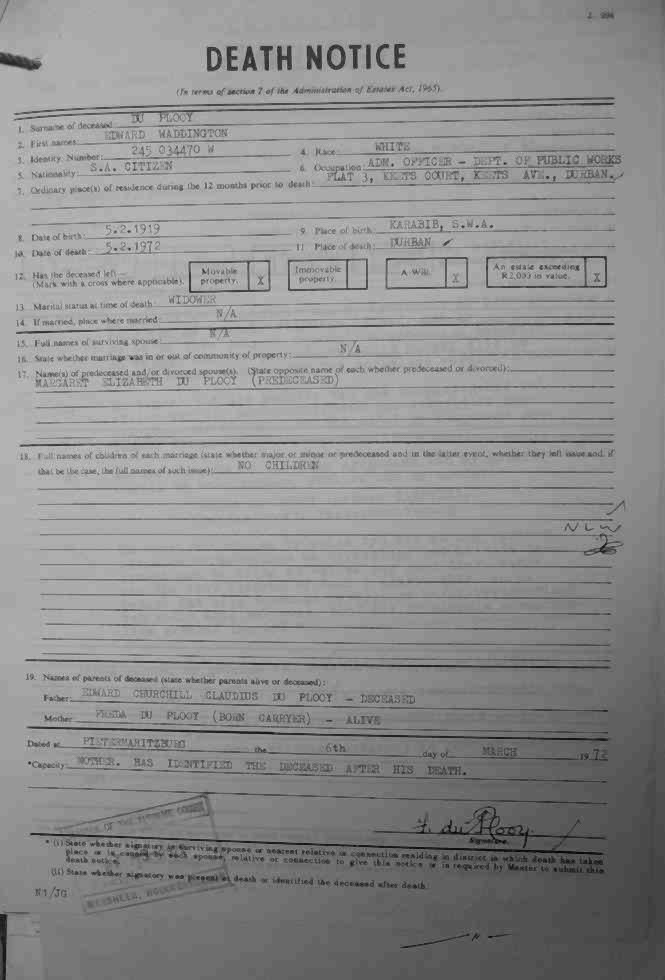 J. 294
DEATH NOTICE
(In terms of section 7 of the Administration of Estates Act, 1965).
1. Surname of deceased: DU PLOOY
2. First names: EDWARD WADDINGTON
3. Identity Number: 245 034470 W 4. Race: WHITE
5. Nationality: S.A. CITIZEN 6. Occupation: ADM. OFFICER - DEPT. OF PUBLIC WORKS
7. Ordinary place(s) of residence during the 12 months prior to death: FLAT 3, KEETS COURT, KEETS AVE., DURBAN.
8. Date of birth: 5.2.1919 9. Place of birth: KARABIB, S.W.A.
10. Date of death: 5.2.1972 11 Place of death: DURBAN
12. Has the deceased left— Movable Immovable A Will. An estate exceeding
(Mark with a cross where applicable). property. X property. X R2,000 in value. X
13. Marital status at time of death: WIDOWER
14. If married, place where married: N/A
15. Full names of surviving spouse: N/A
16. State whether marriage was in or out of community of property: N/A
17. Name(s) of predeceased and/or divorced spouse(s). (State opposite name of each whether predeceased or divorced):
MARGARET ELIZABETH DU PLOOY (PREDECEASED)
18. Full names of children of each marriage (state whether major or minor or predeceased and in the latter event, whether they left issue and, if
that be the case, the full names of such issue): NO CHILDREN
NLW
19. Names of parents of deceased (state whether parents alive or deceased):
Father: EDWARD CHURCHILL CLAUDIUS DU PLOOY - DECEASED
Mother: FREDA DU PLOOY (BORN CARRYER) - ALIVE
Dated at PIETERMARITZBURG the 6th day of MARCH 1972
*Capacity: MOTHER. HAS IDENTIFIED THE DECEASED AFTER HIS DEATH.
F. du Plooy
Signature.
* (i) State whether signatory is surviving spouse or nearest relative or connection residing in district in which death has taken
place or is caused by such spouse, relative or connection to give this notice or is required by Master to submit this
death notice.
(ii) State whether signatory was present at death or identified the deceased after death.
N1/JG
OF THE SUPREME COURT